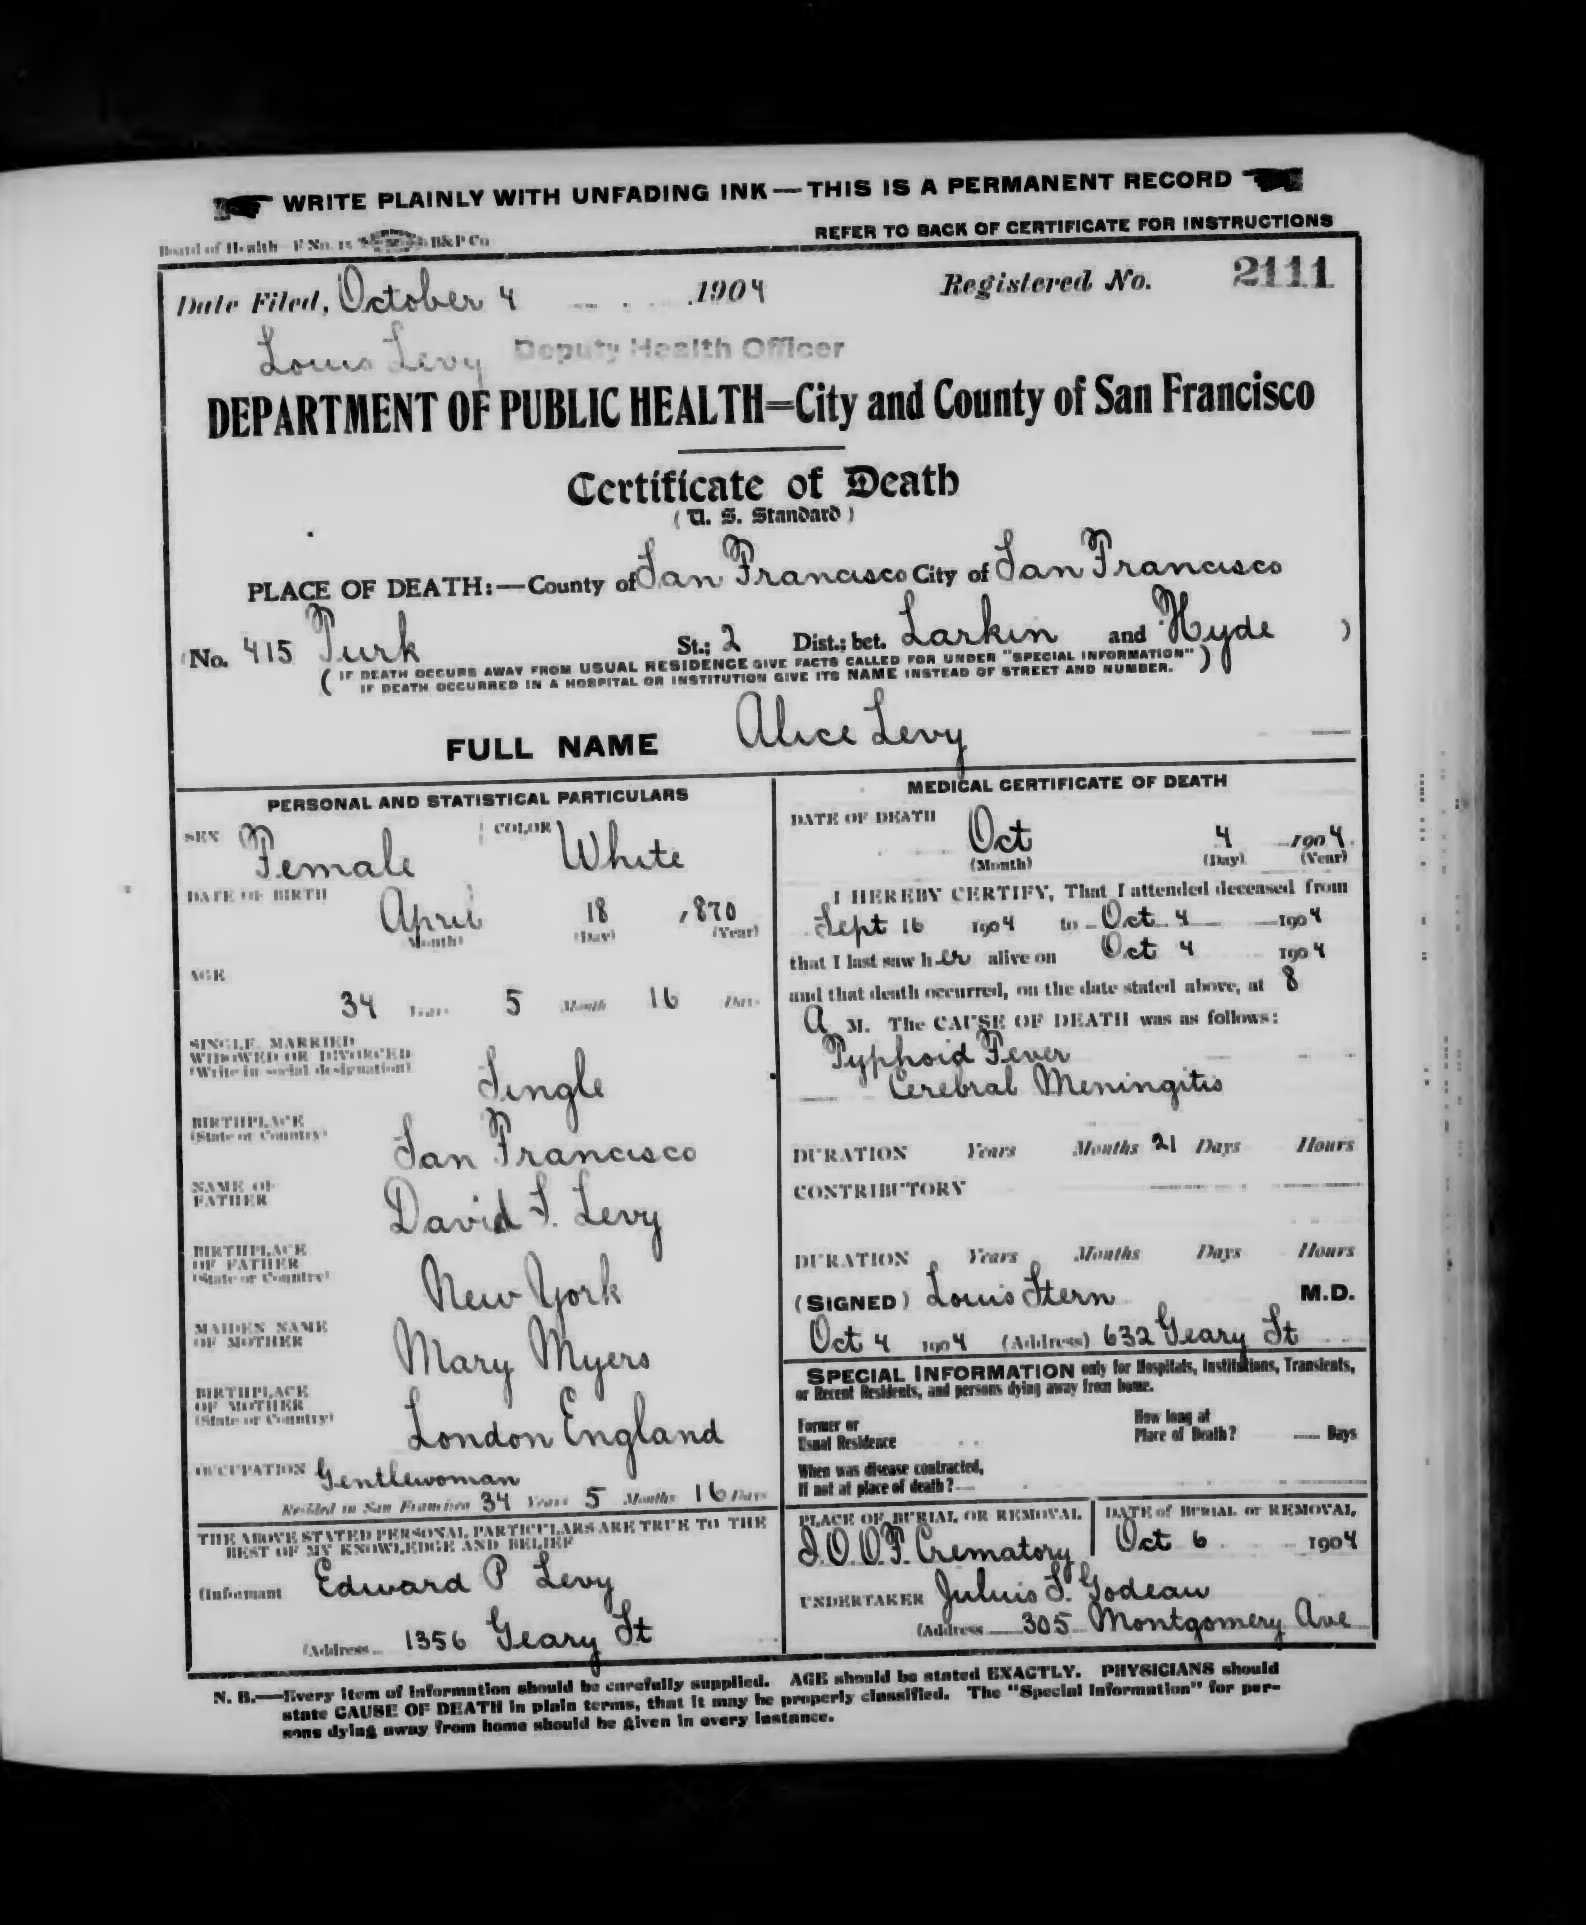 WRITE PLAINLY WITH UNFADING INK — THIS IS A PERMANENT RECORD
Board of Health F No. 15 B&P Co
REFER TO BACK OF CERTIFICATE FOR INSTRUCTIONS
Date Filed, October 4 1904 Registered No. 2111
Louis Levy Deputy Health Officer
DEPARTMENT OF PUBLIC HEALTH=City and County of San Francisco
Certificate of Death
(U. S. Standard)
PLACE OF DEATH:—County of San Francisco City of San Francisco
(No. 415 Turk St.; 2 Dist.; bet. Larkin and Hyde )
( IF DEATH OCCURS AWAY FROM USUAL RESIDENCE GIVE FACTS CALLED FOR UNDER "SPECIAL INFORMATION" )
IF DEATH OCCURRED IN A HOSPITAL OR INSTITUTION GIVE ITS NAME INSTEAD OF STREET AND NUMBER.
FULL NAME Alice Levy
PERSONAL AND STATISTICAL PARTICULARS
SEX Female COLOR White
DATE OF BIRTH
April 18 1870
(Month) (Day) (Year)
AGE
34 Years 5 Month 16 Days
SINGLE, MARRIED
WIDOWED OR DIVORCED
(Write in social designation) Single
BIRTHPLACE
(State or Country) San Francisco
NAME OF
FATHER David S. Levy
BIRTHPLACE
OF FATHER
(State or Country) New York
MAIDEN NAME
OF MOTHER Mary Myers
BIRTHPLACE
OF MOTHER
(State or Country) London England
OCCUPATION Gentlewoman
Resided in San Francisco 34 Years 5 Months 16 Days
THE ABOVE STATED PERSONAL PARTICULARS ARE TRUE TO THE
BEST OF MY KNOWLEDGE AND BELIEF
(Informant Edward P Levy
(Address 1356 Geary St
MEDICAL CERTIFICATE OF DEATH
DATE OF DEATH
Oct 4 1904
(Month) (Day) (Year)
I HEREBY CERTIFY, That I attended deceased from
Sept 16 1904 to Oct 4 1904
that I last saw her alive on Oct 4 1904
and that death occurred, on the date stated above, at 8
A M. The CAUSE OF DEATH was as follows:
Typhoid Fever
Cerebral Meningitis
DURATION Years Months 21 Days Hours
CONTRIBUTORY
DURATION Years Months Days Hours
(SIGNED) Louis Stern M.D.
Oct 4 1904 (Address) 632 Geary St
SPECIAL INFORMATION only for Hospitals, Institutions, Transients,
or Recent Residents, and persons dying away from home.
Former or
Usual Residence
How long at
Place of Death? Days
When was disease contracted,
If not at place of death?
PLACE OF BURIAL OR REMOVAL
I.O.O.F. Crematory
DATE of BURIAL or REMOVAL
Oct 6 1904
UNDERTAKER Julius S. Godeau
(Address 305 Montgomery Ave
N. B.—Every item of information should be carefully supplied. AGE should be stated EXACTLY. PHYSICIANS should
state CAUSE OF DEATH in plain terms, that it may be properly classified. The "Special Information" for per-
sons dying away from home should be given in every instance.